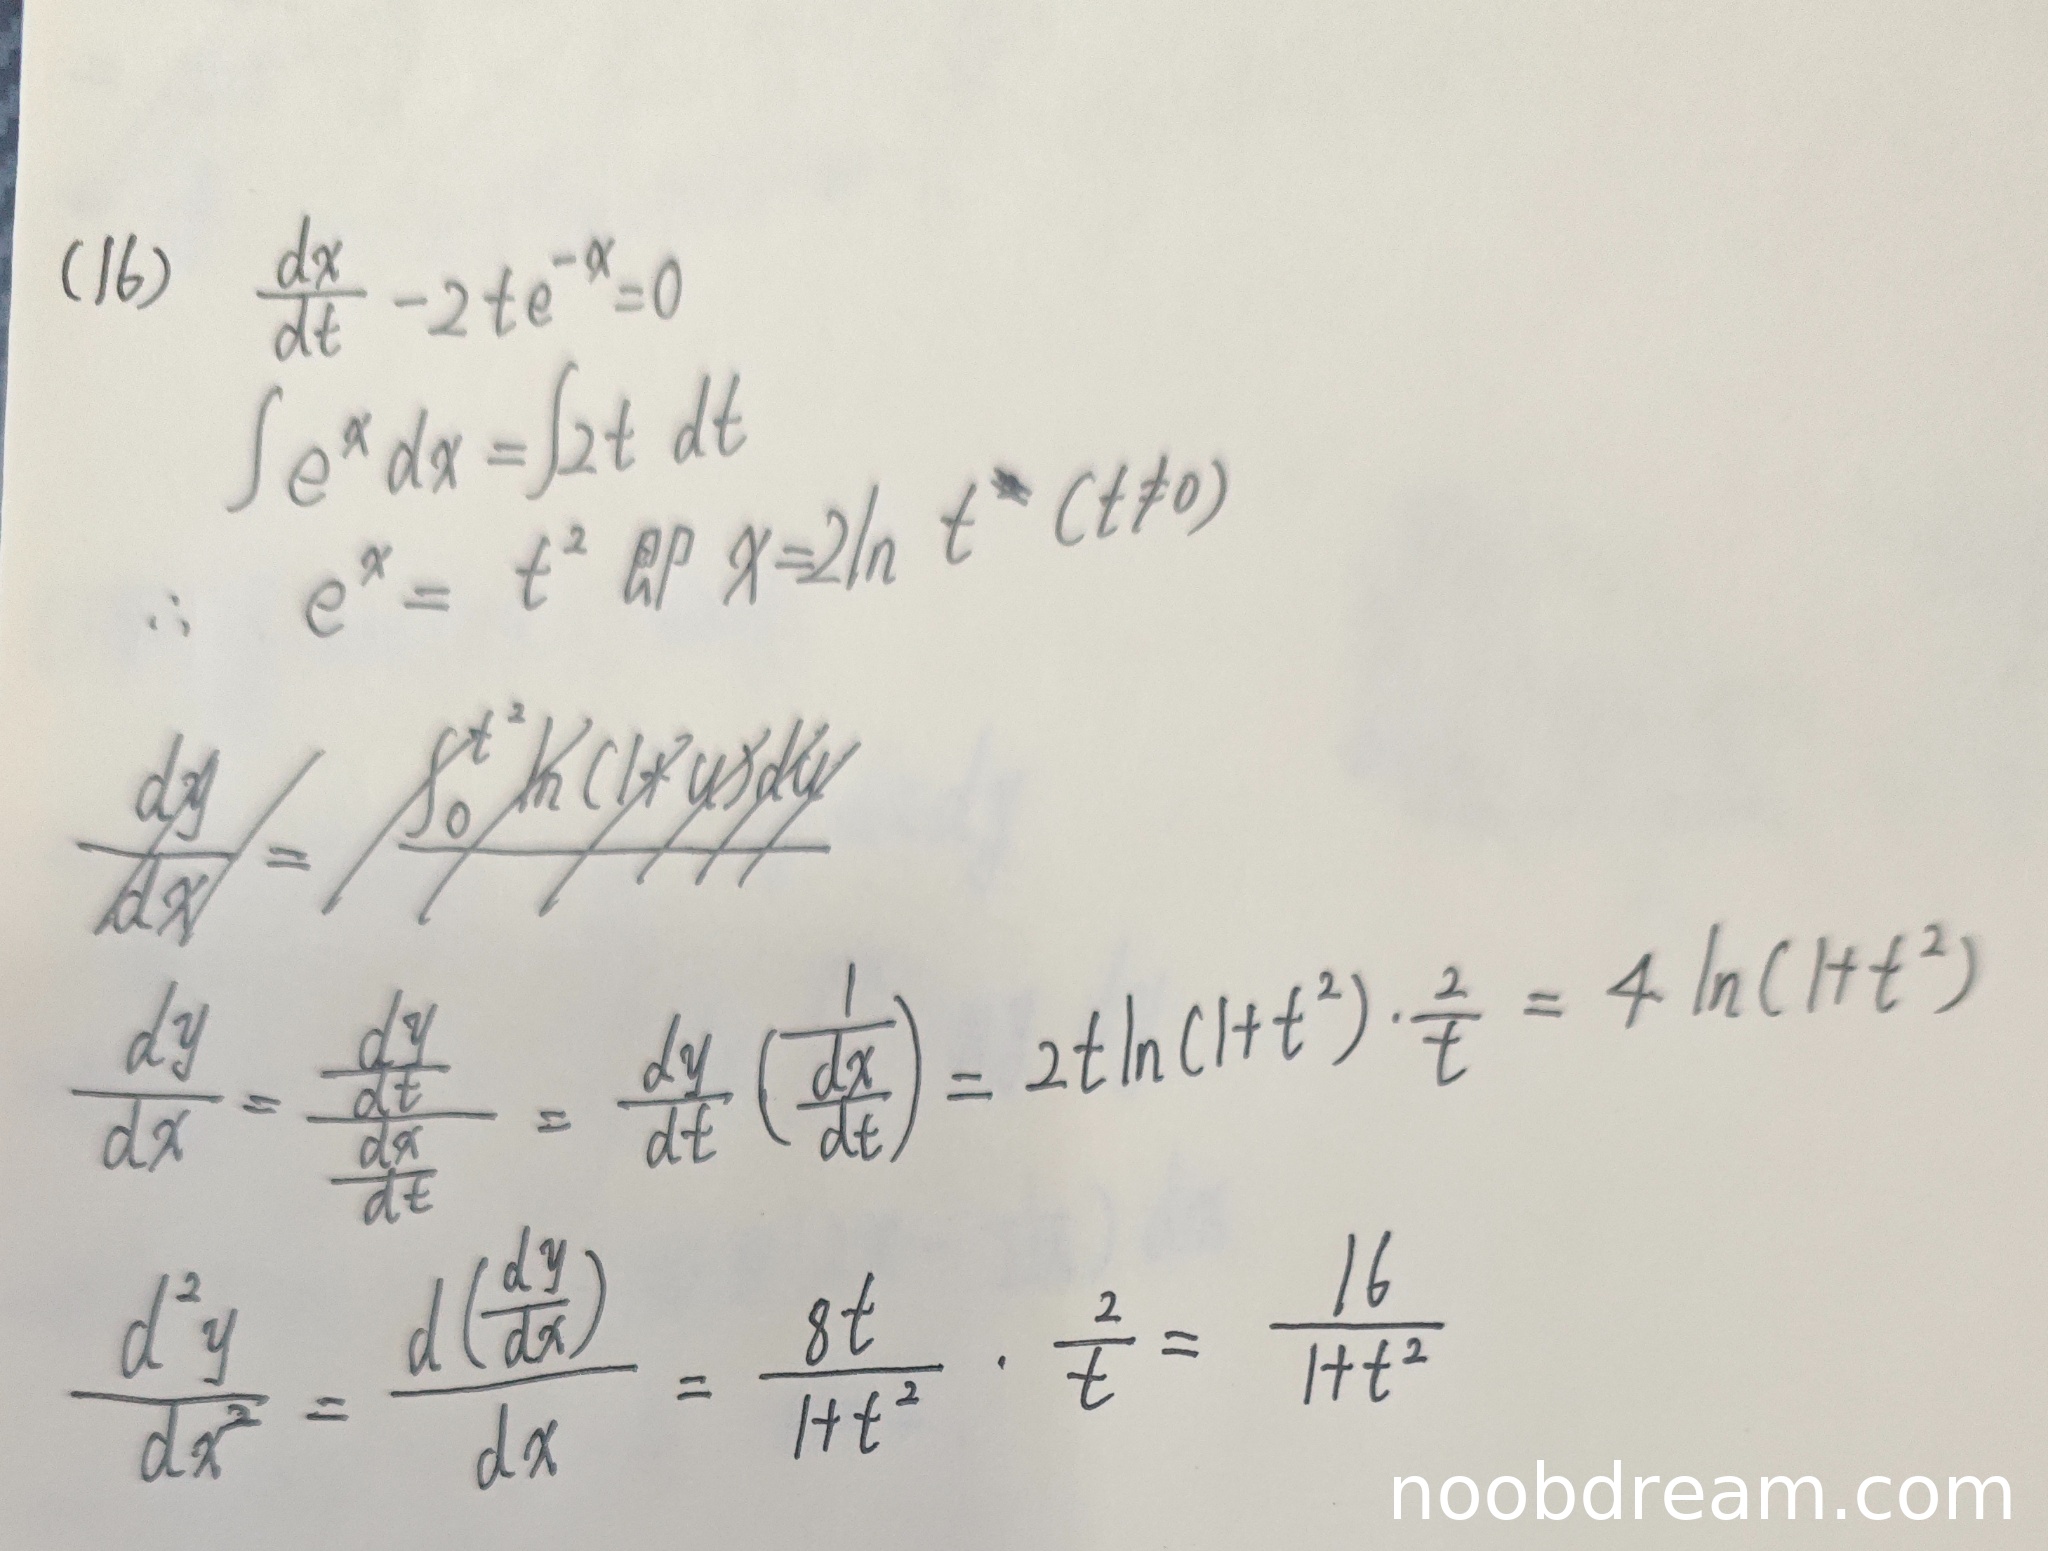 (16) dx/dt - 2te^{-x} = 0
∫e^x dx = ∫2t dt
∴ e^x = t^2 即 x = 2ln t (t≠0)
dy/dx = ∫_0^{t^2} ln(1+u)du
dy/dx = (dy/dt)/(dx/dt) = dy/dt (1/(dx/dt)) = 2t ln(1+t^2) · 2/t = 4 ln(1+t^2)
d^2y/dx^2 = d(dy/dx)/dx = 8t/(1+t^2) · 2/t = 16/(1+t^2)
noobdream.com